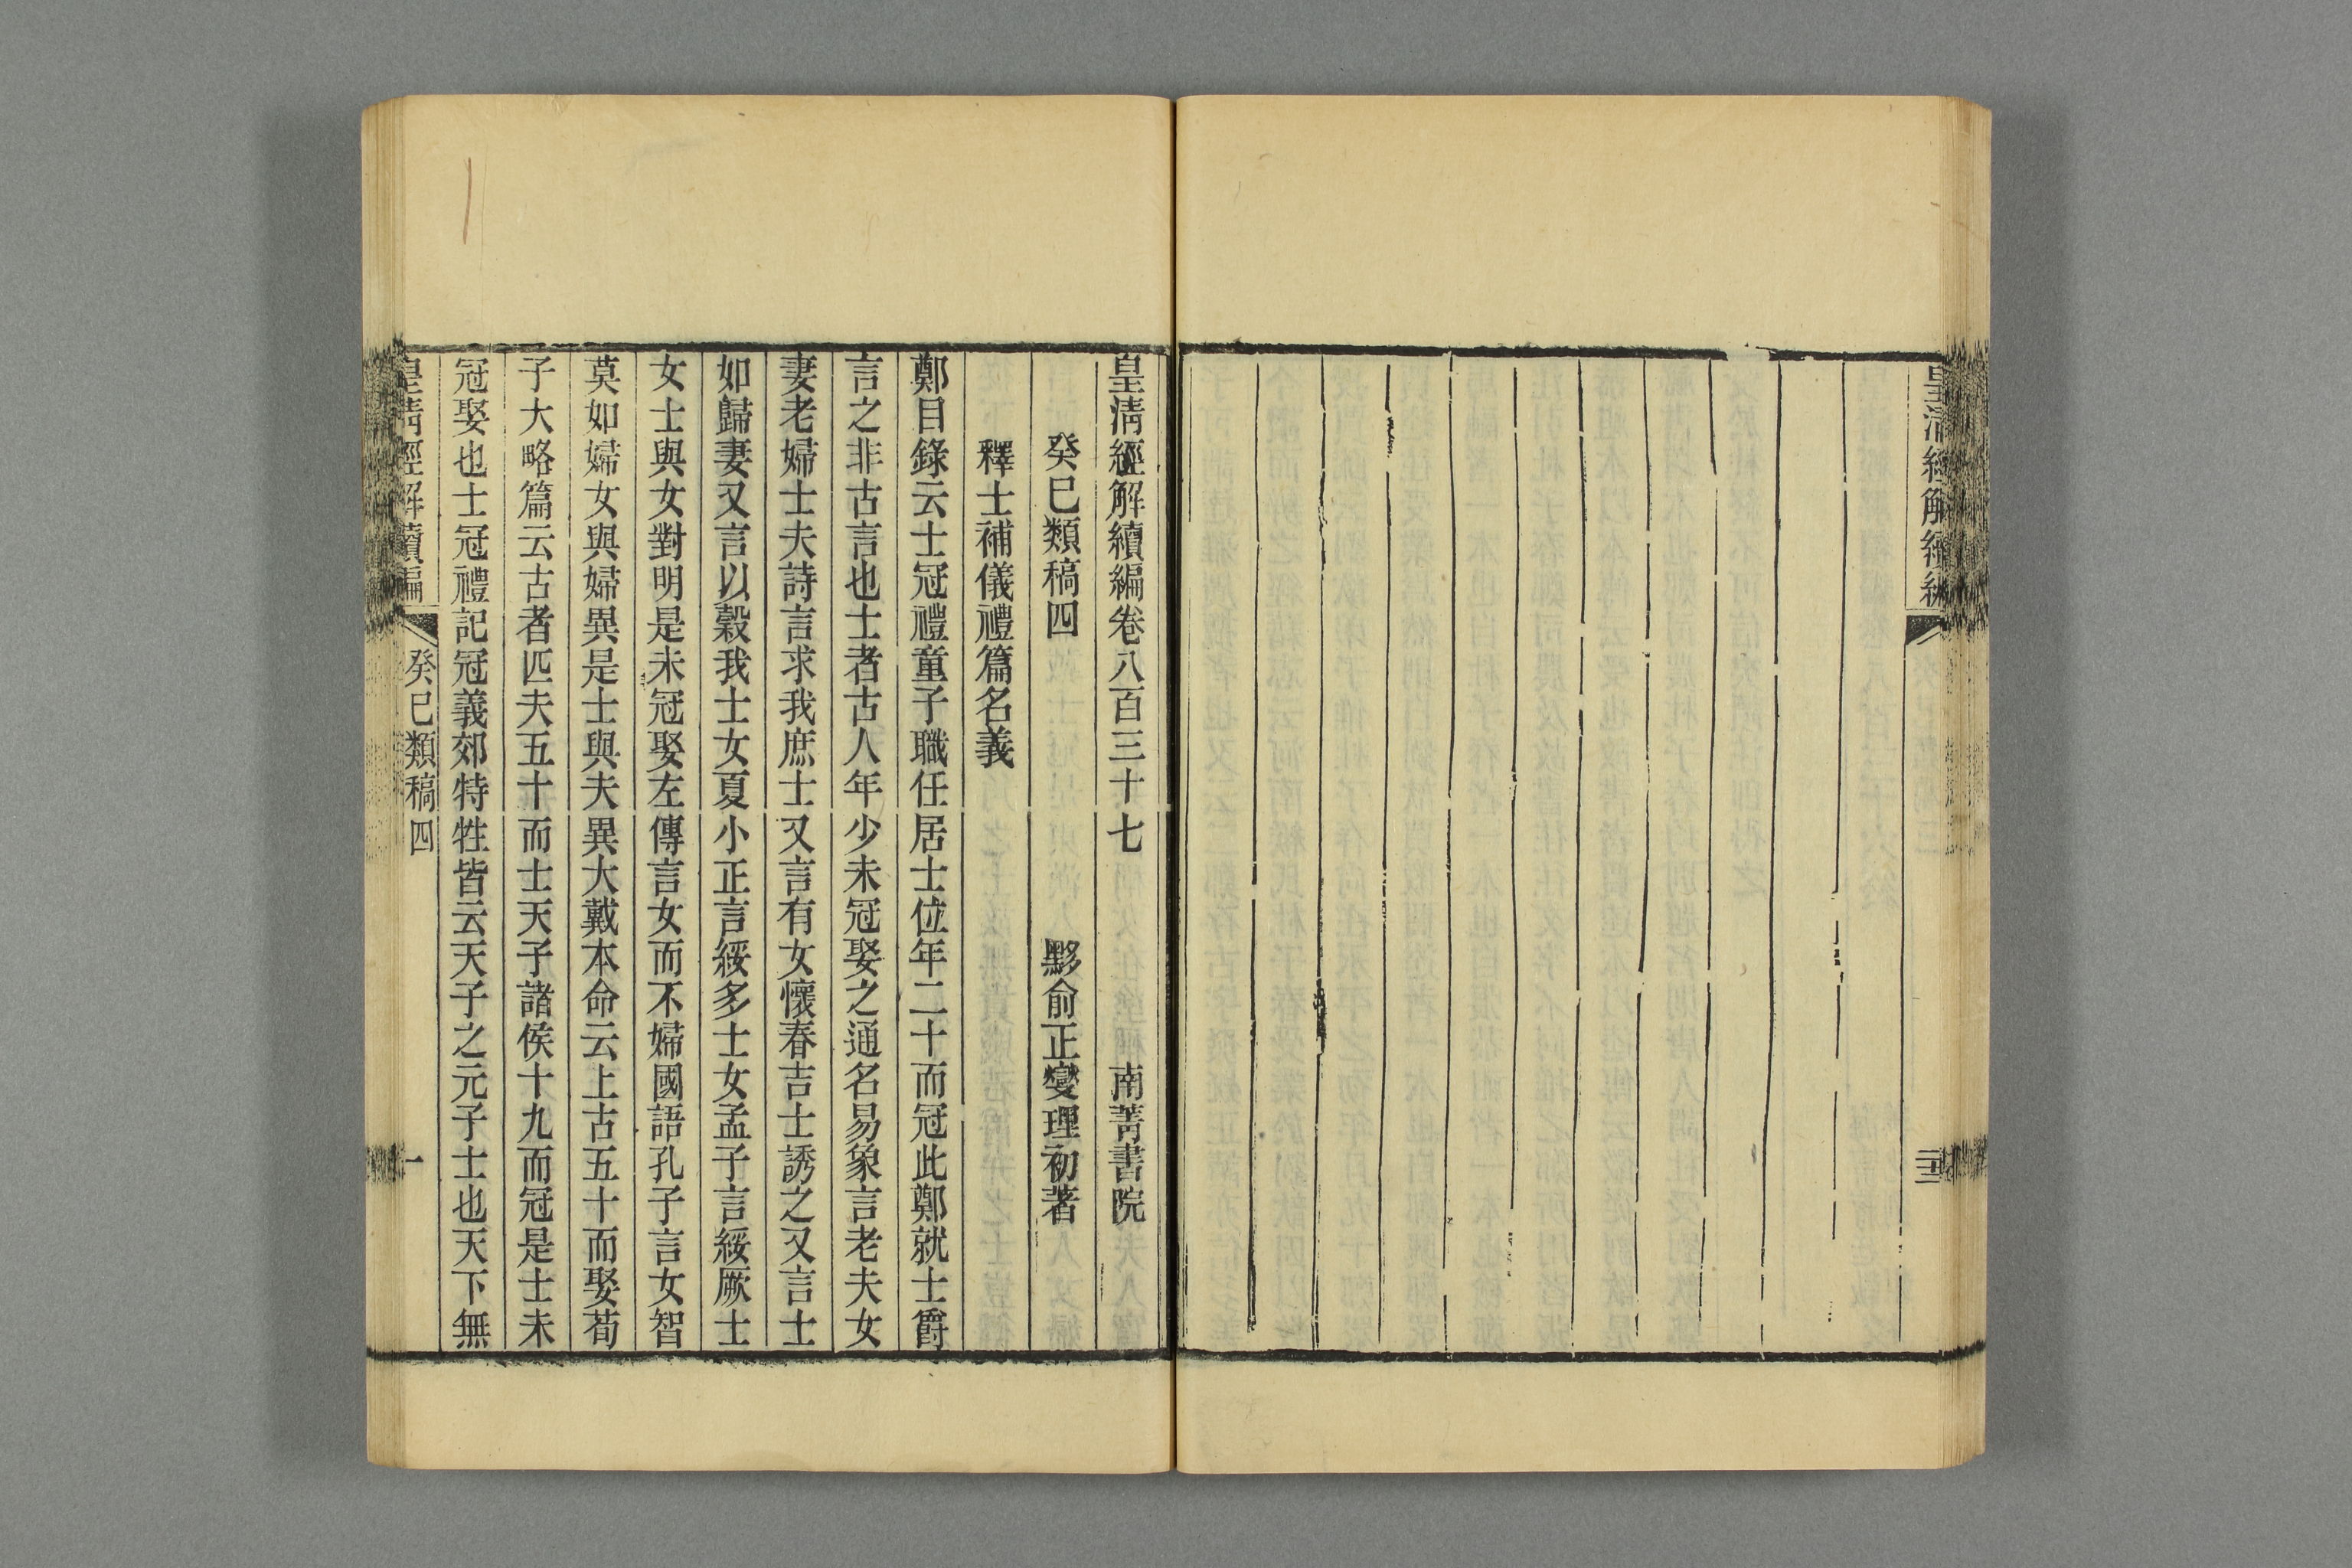 皇清經解續編
二十三
皇清經解續編卷八百三十七　南菁書院
癸巳類稿四　黟俞正燮理初著
釋士補儀禮篇名義
鄭目錄云士冠禮童子職任居士位年二十而冠此鄭就士爵
言之非古言也士者古人年少未冠娶之通名易象言老夫女
妻老婦士夫詩言求我庶士又言有女懷春吉士誘之又言士
如歸妻又言以穀我士女夏小正言綏多士女孟子言綏厥士
女士與女對明是未冠娶左傳言女而不婦國語孔子言女智
莫如婦女與婦異是士與夫異大戴本命云上古五十而娶荀
子大略篇云古者匹夫五十而士天子諸侯十九而冠是士未
冠娶也士冠禮記冠義郊特牲皆云天子之元子士也天下無
皇清經解續編
癸巳類稿四
一